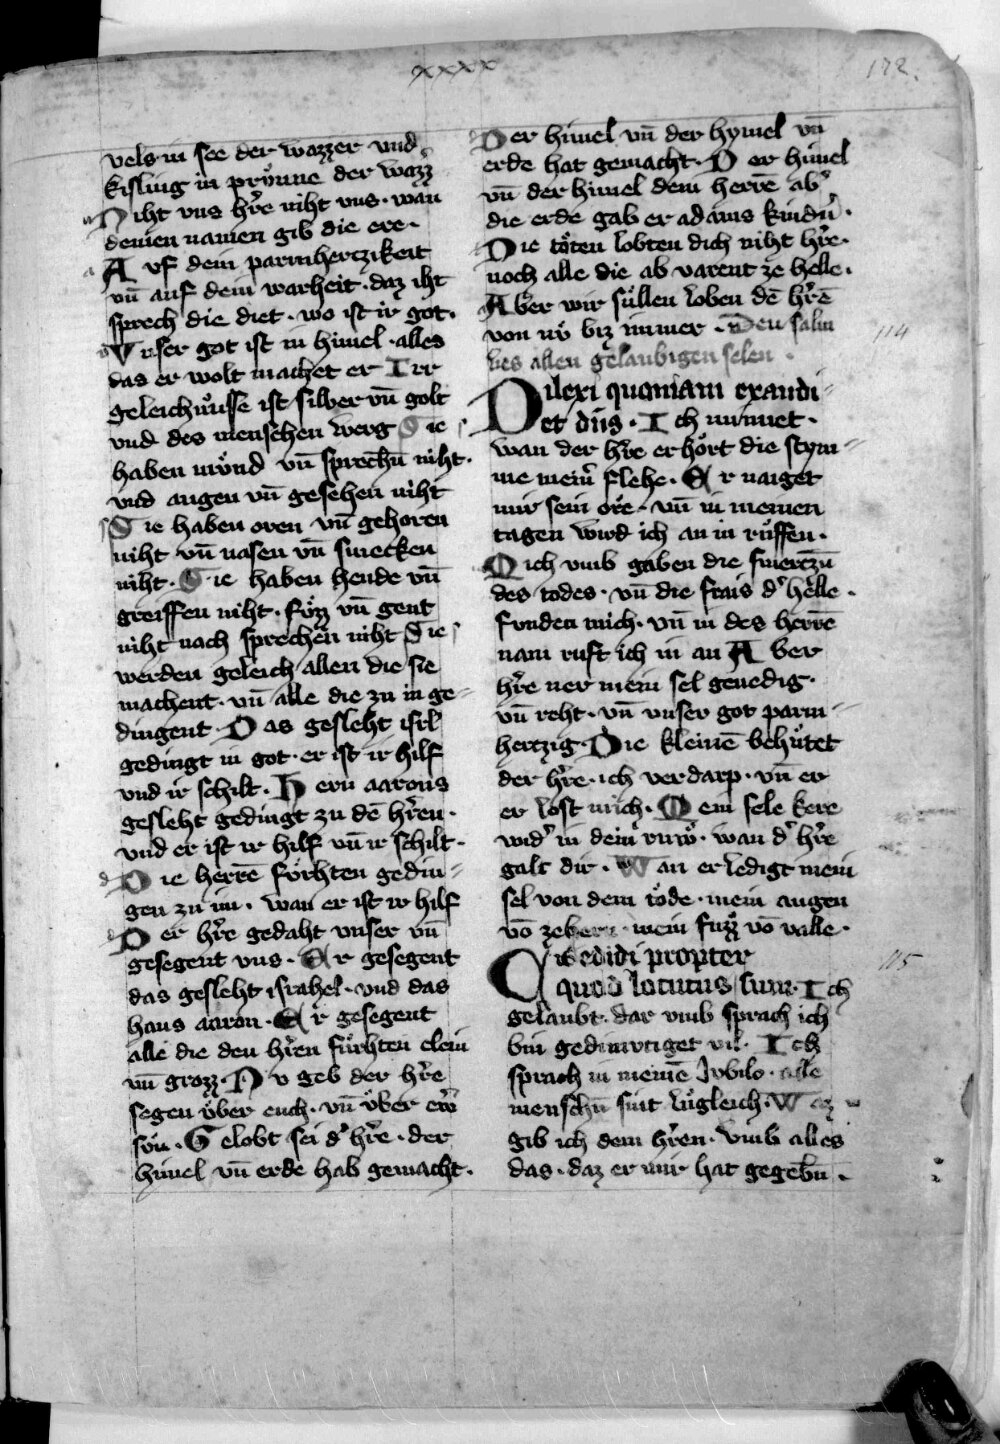 xxxx
172.
vels in see der wazzer vnd
kisling in prunne der wazz̄
Niht vns hr̄e niht vns · wan
deinen namen gib die ere ·
Auf dein parmhertzikeit
vn̄ auf dein warheit · daz iht
sprech die diet · wo ist ir got ·
Vnser got ist in himel · alles
das er wolt machet er Irr
geleichnüsse ist silber vn̄ golt
vnd des menschen werg Sie
haben mund vn̄ sprechn̄ niht ·
vnd augen vn̄ gesehen niht
Sie haben oren vn̄ gehoren
niht vn̄ nasen vn̄ smecken
niht · Sie haben hende vn̄
greiffen niht · füzz vn̄ gent
niht nach sprechen niht Sie
werden geleich allen die sie
machent · vn̄ alle die zu in ge-
dingent · Das gesleht isrl
gedingt in got · er ist ir hilf
vnd ir schilt · Hern aarons
gesleht gedingt zu dē hr̄en ·
vnd er ist ir hilf vn̄ ir schilt ·
Die herrē förhten gedin-
gen zu im · wan er ist ir hilf
Der hr̄e gedaht vnser vn̄
gesegent vns · Er gesegent
das gesleht israhel · vnd das
haus aaron · Er gesegent
alle die den hr̄en fürhten clein
vn̄ grozz · Nv geb der hr̄e
segen über euch · vn̄ über ewr̄
sün · Gelobt sei d' hr̄e · der
himel vn̄ erde hab gemacht ·
Der himel vn̄ der hymel vn̄
erde hat gemacht · Der himel
vn̄ der himel dem herrē ab'
die erde gab er adams kindn̄ ·
Die töten lobten dich niht hr̄e ·
noch alle die ab varent ze helle ·
Aber wir süllen loben dē hr̄ē
von nv biz immer · Den salm
114
des allen gelaubigen selen ·
Dilexi quoniam exaudi-
et dn̄s · Ich minnet ·
wan der hr̄e erhört die stym-
me meinr̄ flehe · Er naiget
mir sein öre · vn̄ in meinen
tagen wird ich an in rüffen ·
Mich vmb gaben die smertzn̄
des todes · vn̄ die frais d' helle ·
funden mich · vn̄ in des herrē
nam ruft ich in an Aber
hr̄e ner mein sel genedig ·
vn̄ reht · vn̄ vnser got parm-
hertzig Die kleinē behütet
der hr̄e · ich verdarp · vn̄ er
er lost mich · Mein sele kere
wid' in dein' ruw · wan d' hr̄e
galt dir · Wan er ledigt mein
sel von dem töde · mein augen
vō zehern · mein fuzz vō valle ·
Credidi propter
115
quod locutus sum · Ich
gelaubt · dar vmb sprach ich
bin gediemvtiget vil · Ich
sprach in meinē Jvbilo · alle
menschn̄ sint lügleich · Waz
gib ich dem hr̄en · vmb alles
das · daz er mir hat gegebn̄ ·